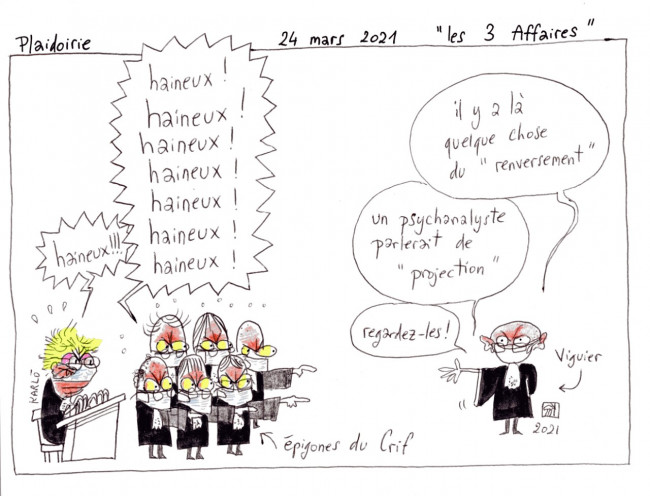 Plaidoirie
24 mars 2021
"les 3 Affaires"
haineux !!!
haineux !
haineux !
haineux !
haineux !
haineux !
haineux !
haineux !
il y a là
quelque chose
du "renversement"
un psychanalyste
parlerait de
"projection"
regardez-les !
KARLÖ
Viguier
épigones du Crif
2021